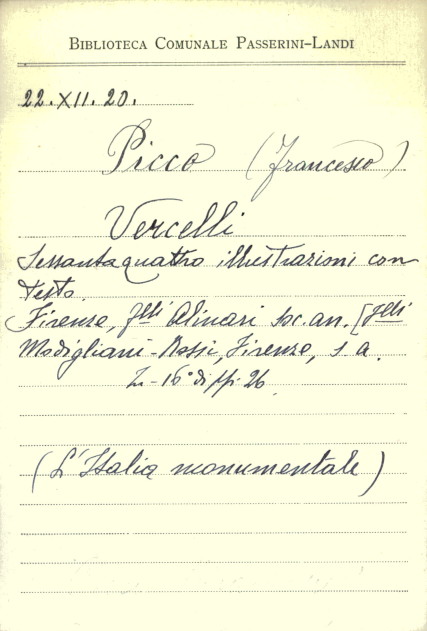 BIBLIOTECA COMUNALE PASSERINI-LANDI
22.XII.20.
Picco (Francesco)
Vercelli
Sessantaquattro illustrazioni con
testo.
Firenze, f.lli Alinari soc. an. [f.lli
Modigliani-Rossi, Firenze, s. a.
In-16° di pp. 26.
(L'Italia monumentale)